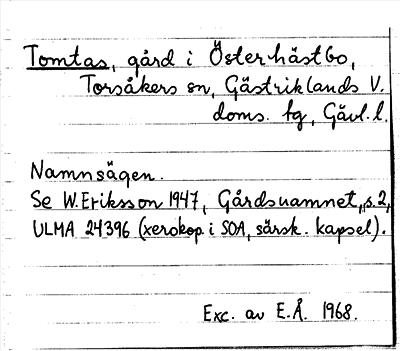 Tomtas, gård i Österhästbo,
Torsåkers sn, Gästriklands V.
doms. tg, Gävl. l.
Namnsägen.
Se W. Eriksson 1947, Gårdsnamnet, s. 2,
ULMA 24396 (xerokop. i SOA, särsk. kapsel).
Exc. av E.Å. 1968.